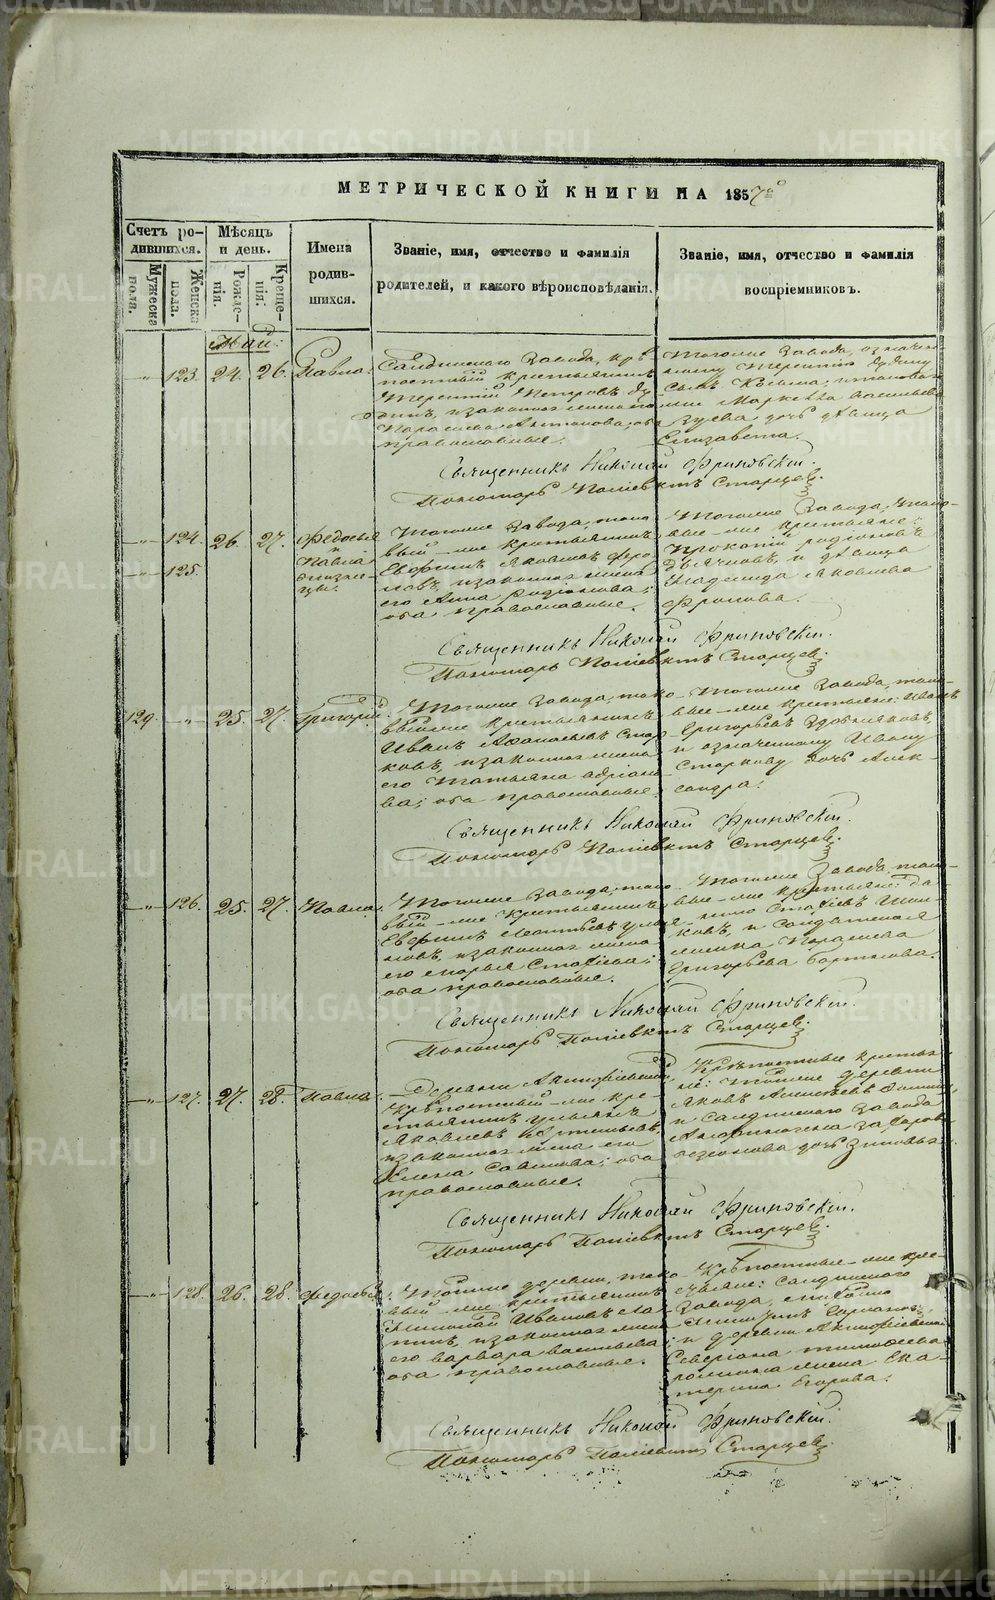 МЕТРИЧЕСКОЙ КНИГИ НА 1857 го
Счетъ ро-
дившихся.
Мужеска
пола.
Женска
пола.
Мѣсяцъ
и день.
Рожде-
нія.
Креще-
нія.
Имена
родив-
шихся.
Званіе, имя, отчество и фамилія
родителей, и какого вѣроисповѣданія.
Званіе, имя, отчество и фамилія
воспріемниковъ.
Май:
-"- 123. 24. 26. Павла.
Салдинскаго Завода, крѣ-
постный крестьянинъ
Терентій Петровъ
и законная жена его
Парасковія Антонова; оба
православные.
Тогоже Завода, означен-
ному Терентію
сынъ Козьма;
Васильева
Зуева дочь дѣвица
Елизавета.
Священникъ Николай Фриновскій.
Пономарь Поліевктъ Старцевъ
-"- 124. 26. 27. Федосья
и
-"- 125. Павла
близне-
цы.
Тогоже Завода, тако-
вый-же крестьянинъ
Евфимъ Яковлевъ Фро-
ловъ, и законная жена
его Анна Родіонова;
оба православные.
Тогоже Завода, тако-
вые-же крестьяне:
Прокопій Родіоновъ
Дьячковъ, и дѣвица
Яковлева
Фролова.
Священникъ Николай Фриновскій.
Пономарь Поліевктъ Старцевъ
129. -"- 25. 27. Григорій.
Тогоже Завода, тако-
выйже крестьянинъ
Иванъ Афанасьевъ Стар-
ковъ, и законная жена
его Татьяна Адріано-
ва; оба православные.
Тогоже Завода, тако-
вые-же крестьяне: Иванъ
Григорьевъ
и означенному Ивану
Старкову дочь Алек-
сандра.
Священникъ Николай Фриновскій.
Пономарь Поліевктъ Старцевъ
-"- 126. 25. 27. Павла.
Тогоже Завода, тако-
вый-же крестьянинъ
Евфимъ Леонтьевъ
и законная жена
его Марья Статіева;
оба православные.
Тогоже Завода, тако-
вые-же крестьяне: Да-
нило Статіевъ
и солдатская
женка Парасковія
Григорьева
Священникъ Николай Фриновскій.
Пономарь Поліевктъ Старцевъ
-"- 127. 27. 28. Павла.
Деревни Акинфіевской,
крѣпостный-же кре-
стьянинъ Ульянъ
Яковлевъ Артемьевъ,
и законная жена его
Елена Саввинова; оба
православные.
Крѣпостные крестья-
не: тойже деревни
Яковъ Алексѣевъ
и Салдинскаго Завода
дочь Зиновья.
Священникъ Николай Фриновскій.
Пономарь Поліевктъ Старцевъ
-"- 128. 26. 28. Федосья.
Тойже деревни, тако-
вый-же крестьянинъ
Николай Ивановъ
и законная жена
его Варвара Васильева
оба православные.
Крѣпостные-же кре-
стьяне: Салдинскаго
Завода,
и деревни Акинфіевской
жена Ека-
терина Егорова.
Священникъ Николай Фриновскій.
Пономарь Поліевктъ Старцевъ
METRIKI.GASO-URAL.RU